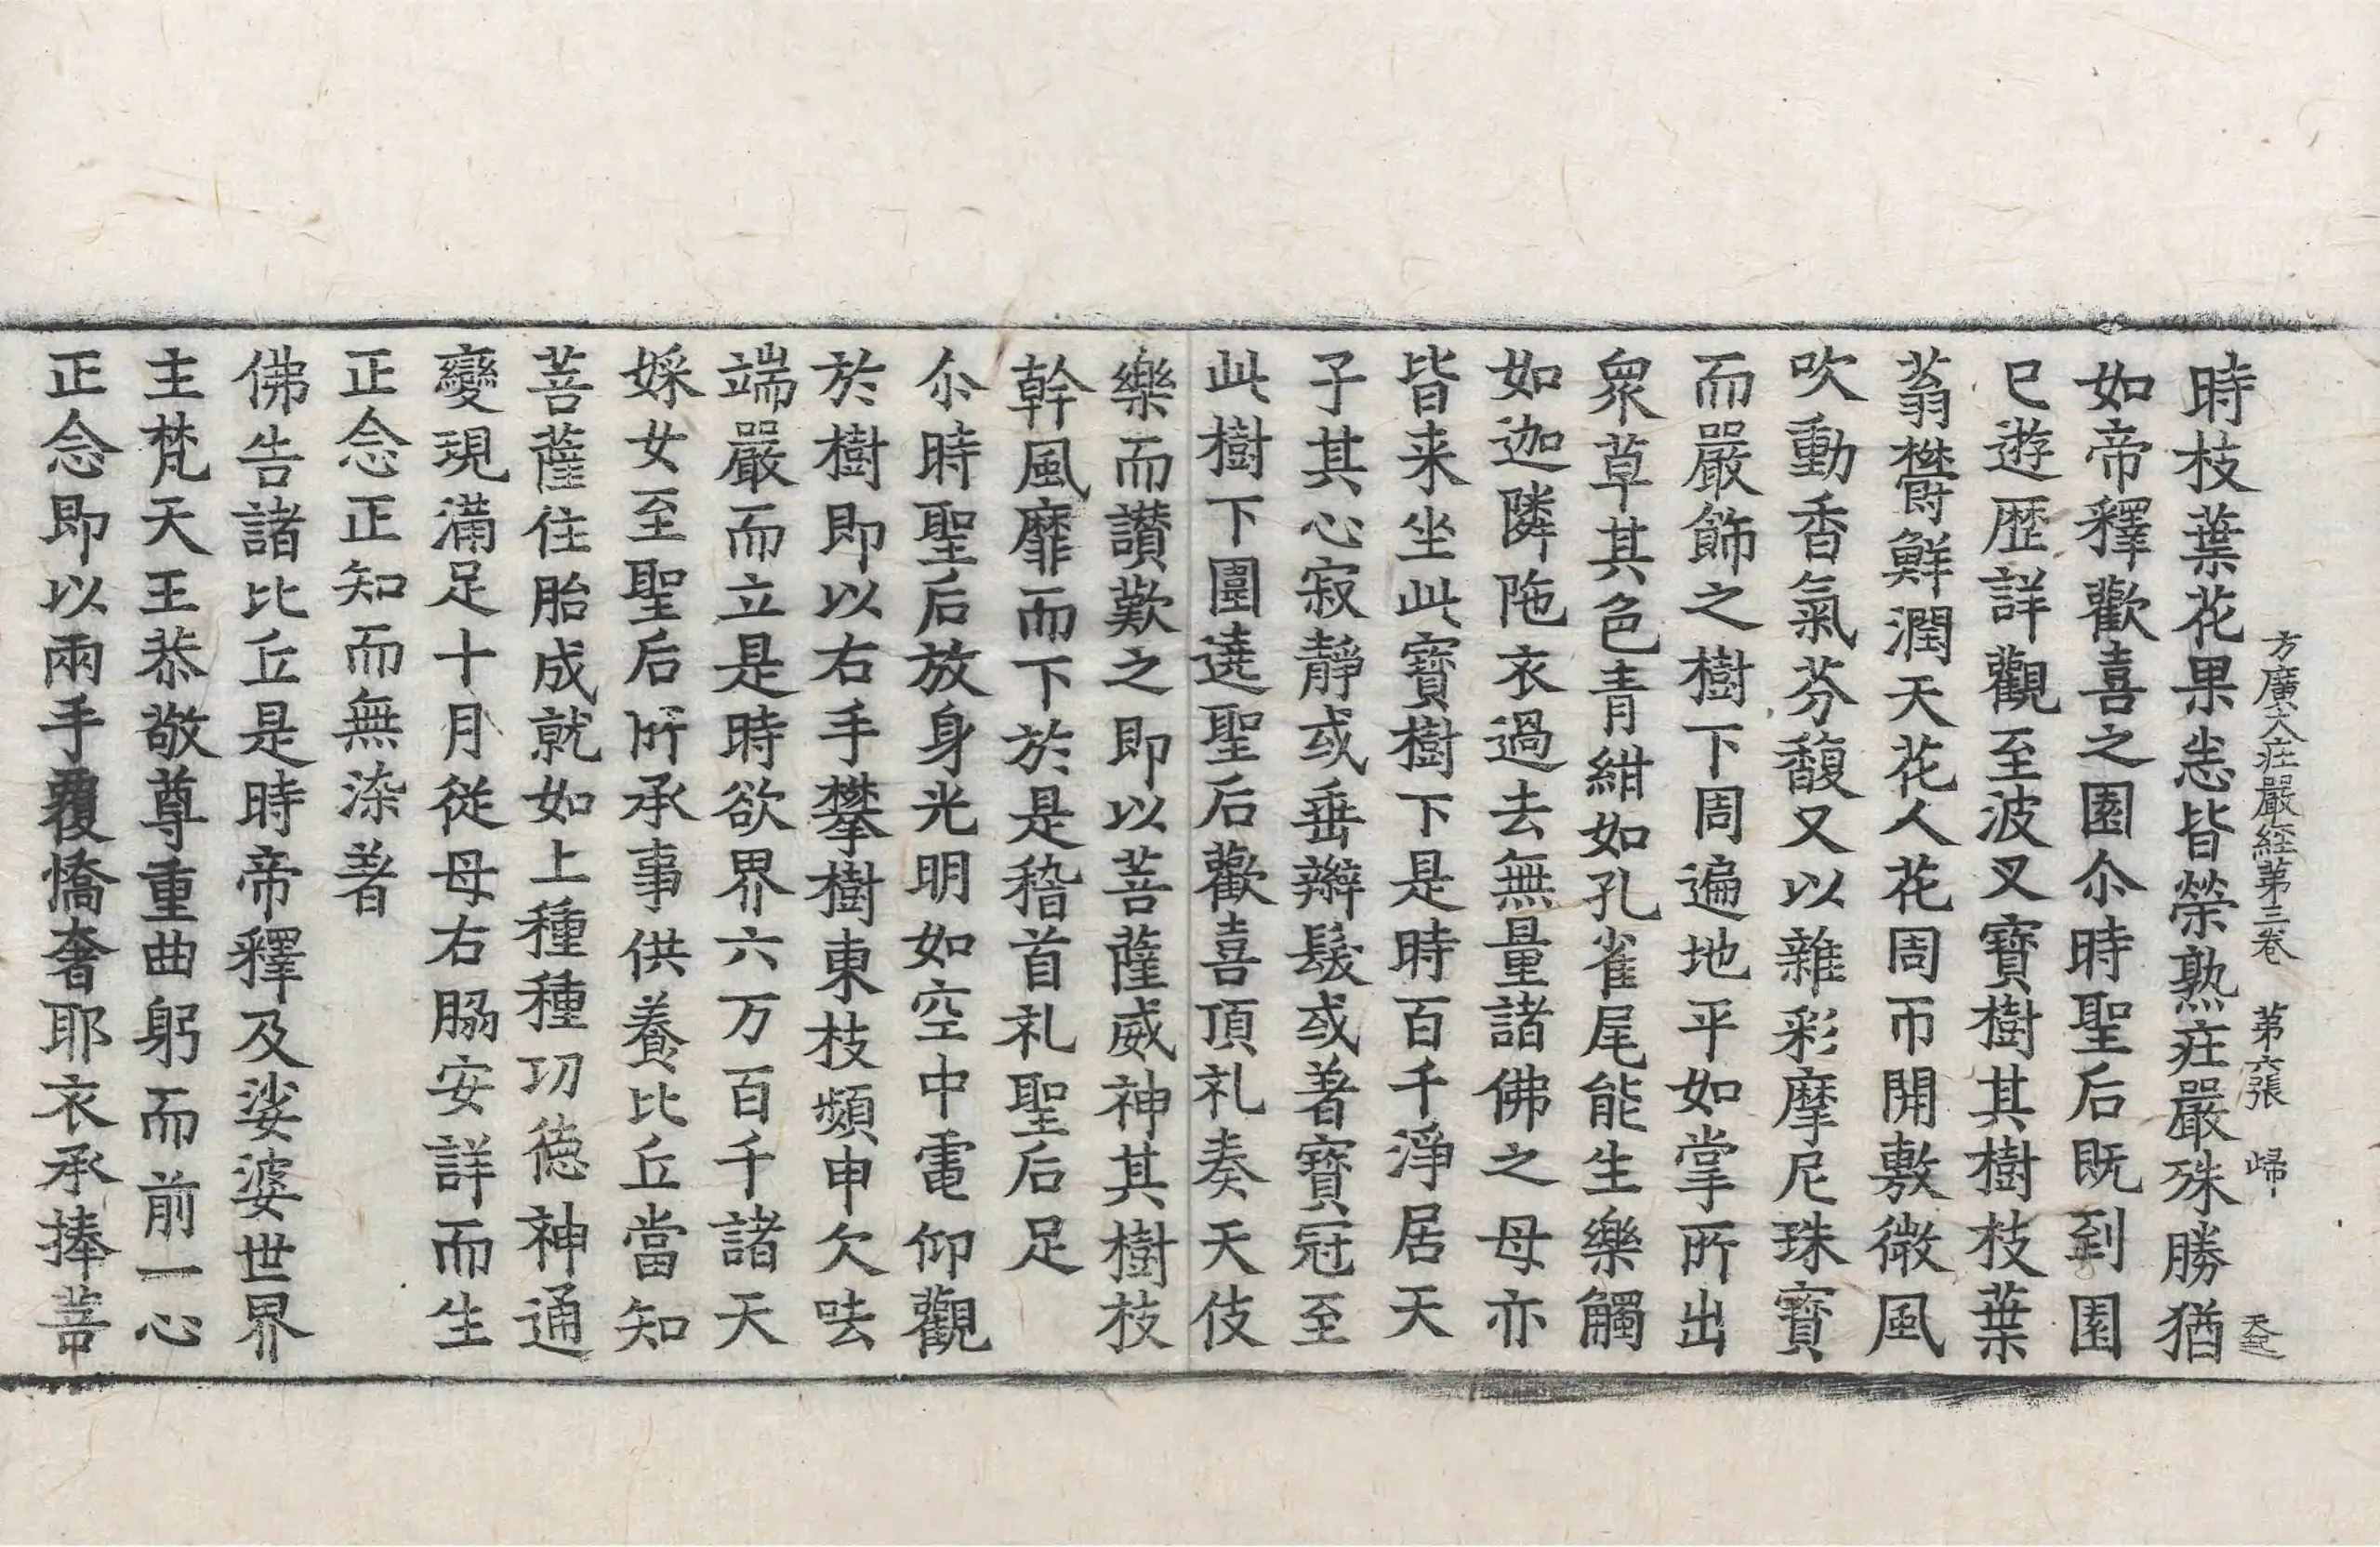 方廣大莊嚴經第三卷 第六張 歸
時枝葉花果悉皆榮熟莊嚴殊勝猶
如帝釋歡喜之園尒時聖后既到園
已遊歷詳觀至波叉寶樹其樹枝葉
蓊欝鮮潤天花人花周帀開敷微風
吹動香氣芬馥又以雜彩摩尼珠寶
而嚴飾之樹下周遍地平如掌所出
衆草其色青紺如孔雀尾能生樂觸
如迦隣陁衣過去無量諸佛之母亦
皆来坐此寶樹下是時百千淨居天
子其心寂靜或垂辮髮或著寶冠至
此樹下圍遶聖后歡喜頂礼奏天伎
樂而讃歎之即以菩薩威神其樹枝
幹風靡而下於是稽首礼聖后足
尒時聖后放身光明如空中電仰觀
於樹即以右手攀樹東枝頻申欠呿
端嚴而立是時欲界六万百千諸天
婇女至聖后所承事供養比丘當知
菩薩住胎成就如上種種功德神通
變現滿足十月從母右脇安詳而生
正念正知而無染著
佛告諸比丘是時帝釋及娑婆世界
主梵天王恭敬尊重曲躬而前一心
正念即以兩手覆憍奢耶衣承捧菩